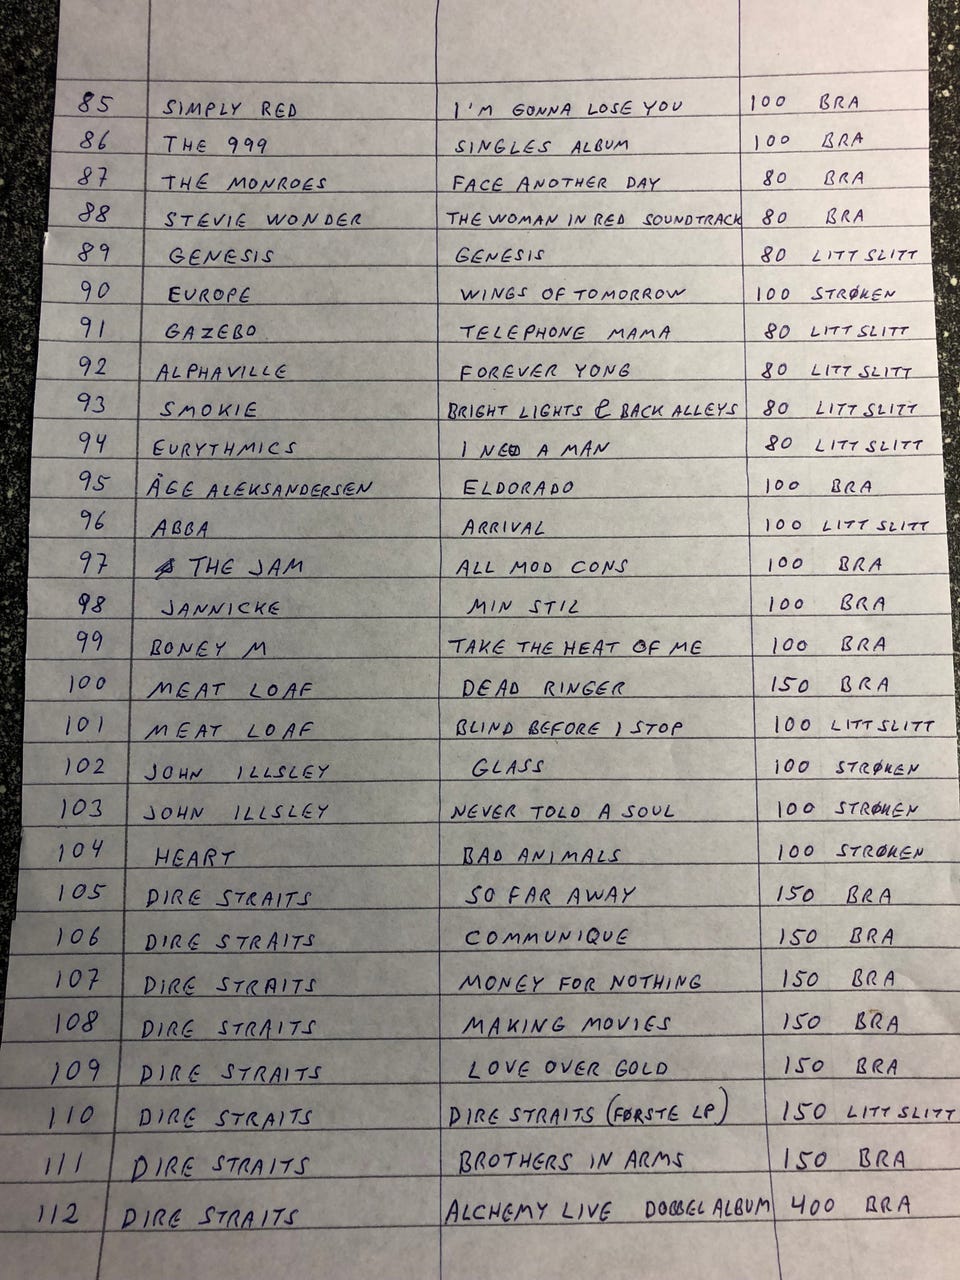 85 SIMPLY RED I'M GONNA LOSE YOU 100 BRA
86 THE 999 SINGLES ALBUM 100 BRA
87 THE MONROES FACE ANOTHER DAY 80 BRA
88 STEVIE WONDER THE WOMAN IN RED SOUNDTRACK 80 BRA
89 GENESIS GENESIS 80 LITT SLITT
90 EUROPE WINGS OF TOMORROW 100 STRØKEN
91 GAZEBO TELEPHONE MAMA 80 LITT SLITT
92 ALPHAVILLE FOREVER YONG 80 LITT SLITT
93 SMOKIE BRIGHT LIGHTS & BACK ALLEYS 80 LITT SLITT
94 EURYTHMICS I NEED A MAN 80 LITT SLITT
95 ÅGE ALEKSANDERSEN ELDORADO 100 BRA
96 ABBA ARRIVAL 100 LITT SLITT
97 THE JAM ALL MOD CONS 100 BRA
98 JANNICKE MIN STIL 100 BRA
99 BONEY M TAKE THE HEAT OF ME 100 BRA
100 MEAT LOAF DEAD RINGER 150 BRA
101 MEAT LOAF BLIND BEFORE I STOP 100 LITT SLITT
102 JOHN ILLSLEY GLASS 100 STRØKEN
103 JOHN ILLSLEY NEVER TOLD A SOUL 100 STRØKEN
104 HEART BAD ANIMALS 100 STRØKEN
105 DIRE STRAITS SO FAR AWAY 150 BRA
106 DIRE STRAITS COMMUNIQUE 150 BRA
107 DIRE STRAITS MONEY FOR NOTHING 150 BRA
108 DIRE STRAITS MAKING MOVIES 150 BRA
109 DIRE STRAITS LOVE OVER GOLD 150 BRA
110 DIRE STRAITS DIRE STRAITS (FØRSTE LP) 150 LITT SLITT
111 DIRE STRAITS BROTHERS IN ARMS 150 BRA
112 DIRE STRAITS ALCHEMY LIVE DOBBEL ALBUM 400 BRA